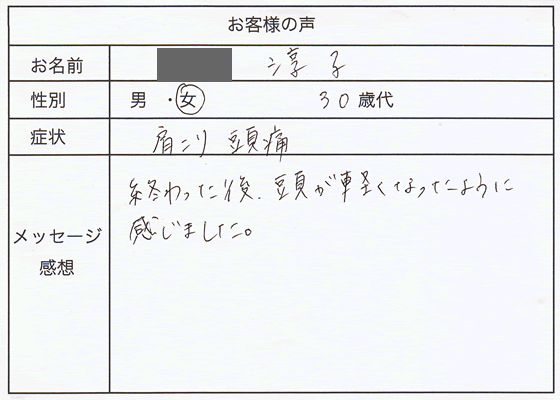 お客様の声
お名前 淳子
性別 男・女 30歳代
症状 肩こり 頭痛
メッセージ
感想
終わった後、頭が軽くなったように
感じました。